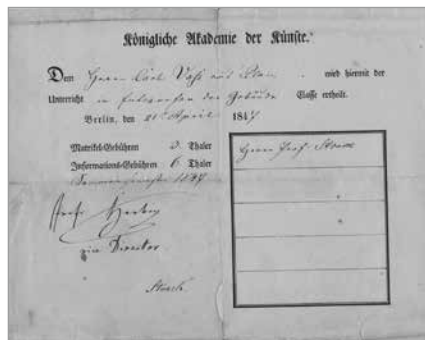 Königliche Akademie der Künste.
Dem Herrn Carl Vahl aus wird hiermit der
Unterricht in Entwerfen der Gebäude Classe ertheilt.
Berlin, den 21 April 1847
Matrikel-Gebühren 3 Thaler
Informations-Gebühren 6 Thaler
Sommersemester 1847
Herrn Prof. Stier
Prof Herbig
Director